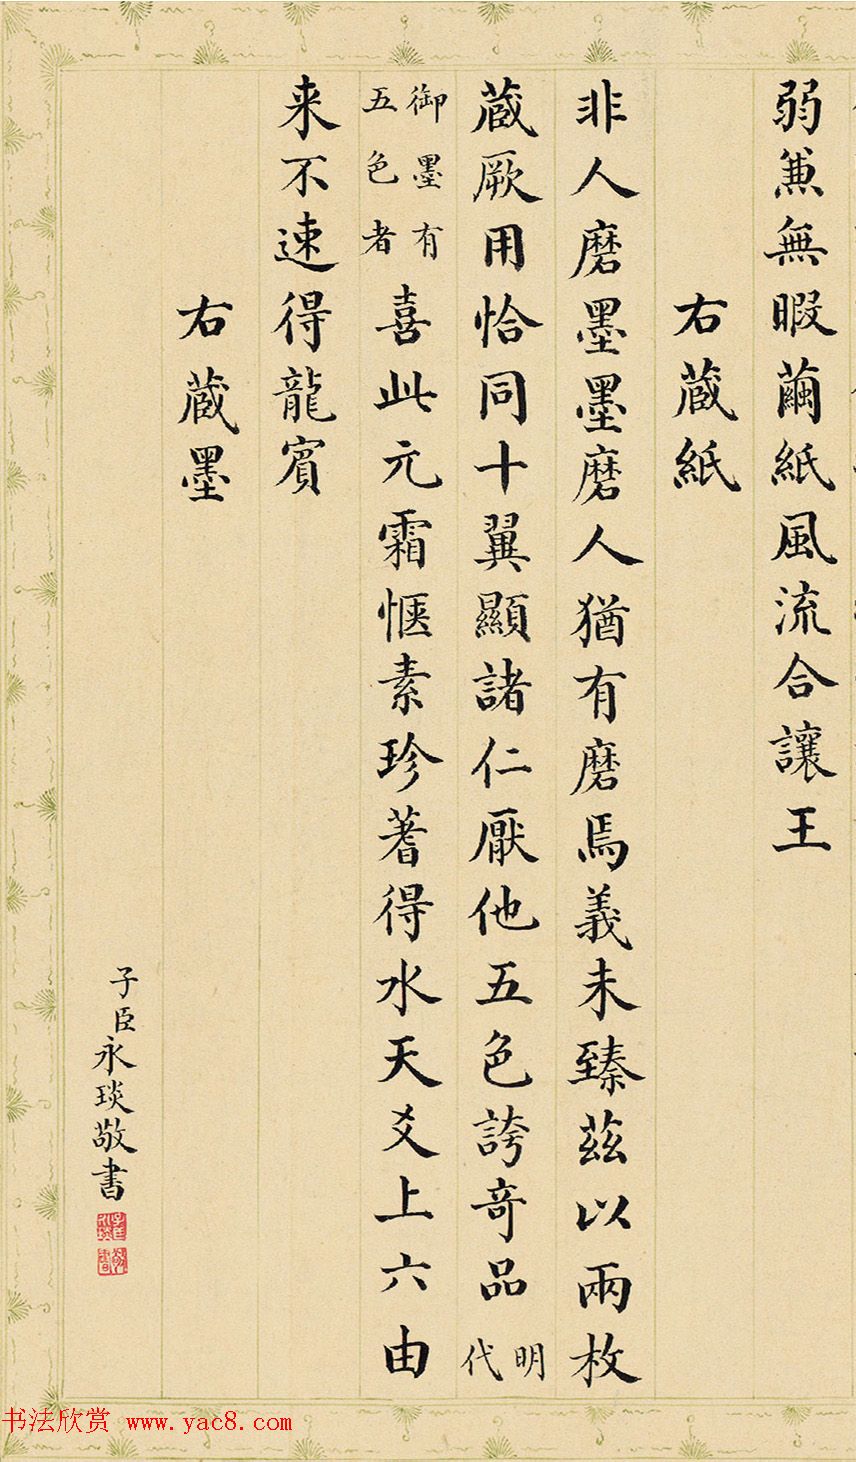 弱兼無暇繭紙風流合讓王
右蔵紙
非人磨墨墨磨人猶有磨焉義未臻茲以兩枚
蔵厥用恰同十翼顯諸仁厭他五色誇奇品明代
御墨有五色者喜此元霜愜素珍蓍得水天爻上六由
来不速得龍賓
右蔵墨
子臣永琰敬書
书法欣赏 www.yac8.com